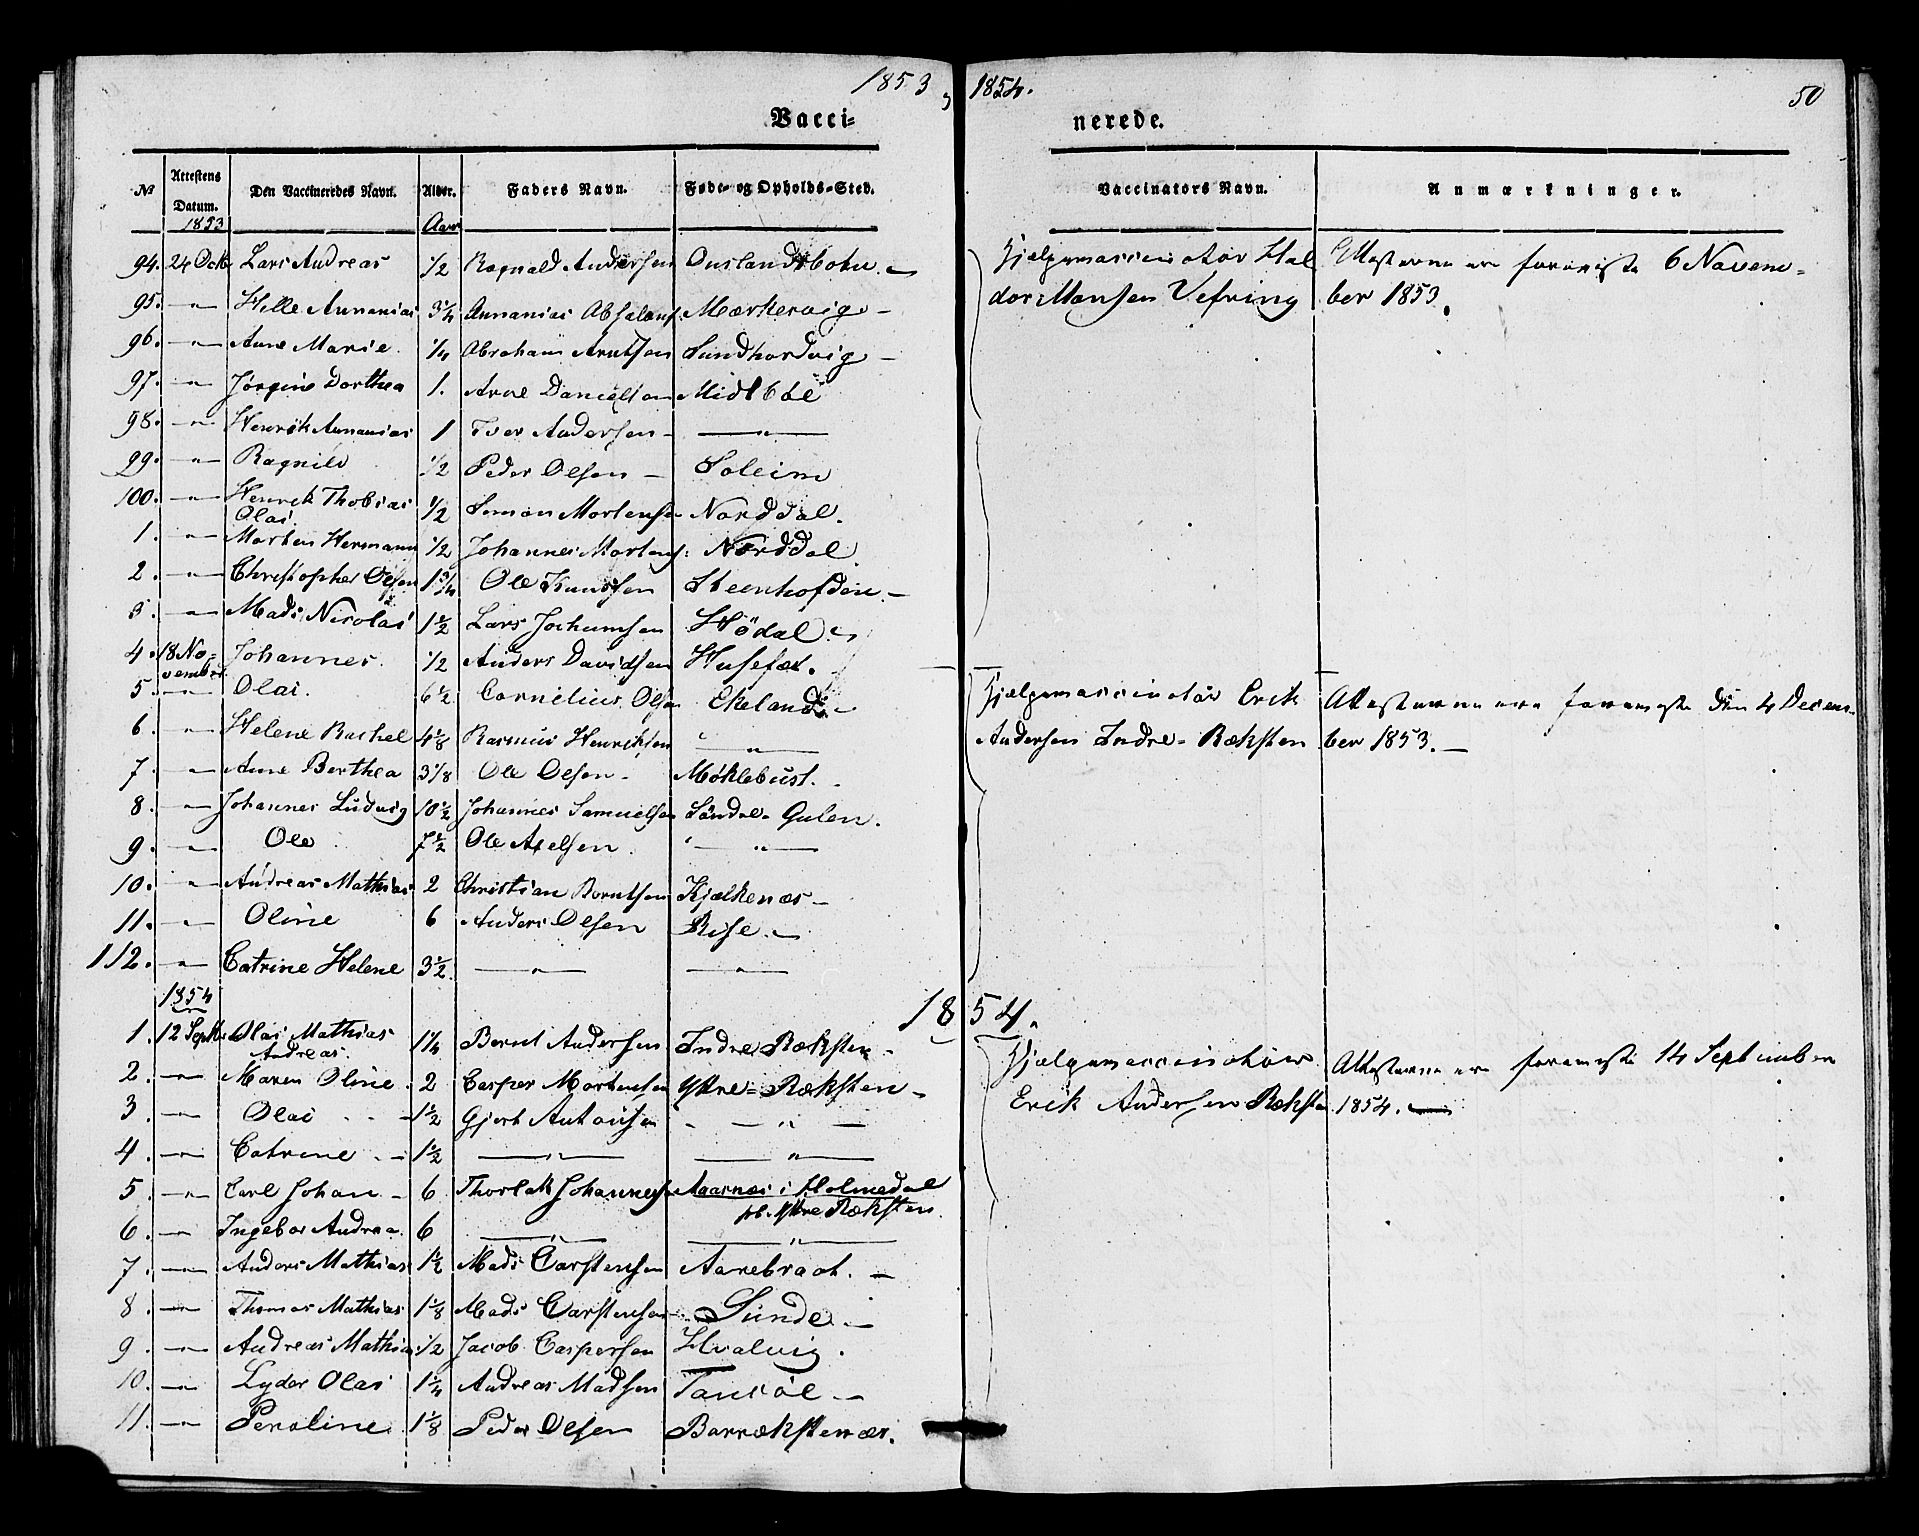 1853, 1854. 50
Vacci- nerede.
№ Attestens Datum. Den Vaccineredes Navn. Alder. Faders Navn. Føde- og Opholds-Sted. Vaccinators Navn. Anmærkninger.
1853 Aar
94. 24 Octb Lars Andreas 1/2 Ragnald Andersen Ouslandsbotn.
95. -"- Hille Annanias 3/4 Annanias Absalons: Mærkevig
96. -"- Anne Marie 1/4 Abraham Arntsen Sundhordvig
97. -"- Jørgine Dorthea 1. Arne Danielsen Midtbøe
98. -"- Henrik Annanias 1 Iver Andersen -"-
99. -"- Ragnild 1/2 Peder Olsen Soleim
100. -"- Henrik Thobias Olai. 1/2 Simon Mortensen Norddal.
1. -"- Morten Hermann 1/2 Johannes Mortens: Norddal
2. -"- Christopher Olsen 1 3/4 Ole Knudsen Steenhofden
3. -"- Mads Nicolai 1 1/2 Lars Jochumsen Hödal
4. 18 November Johannes. 1/2 Anders Davidsen Husefæt.
5. -"- Olai. 6 1/2 Cornelius Olsen Ekeland
6. -"- Helene Rachel 4 1/8 Rasmus Henriksen -"-
7. -"- Anne Berthea 3 1/8 Ole Olsen Møklebust.
8. -"- Johannes Ludvig 10 1/2 Johannes Samuelsen Söndre Gulen.
9. -"- Ole 7 1/2 Ole Axelsen. -"-
10. -"- Andreas Mathias 2 Christian Berntsen Kjelkenæs
11. -"- Oline 6 Anders Olsen Rise.
112. -"- Catrine Helene 3 1/2. -"- -"-
Hjelpevaccinatør Hal
dor Monsen Vefring
Attesterne ere foreviste 6 Novem-
ber 1853.
Hjelpevaccinatør Erik
Andersen Indre-Ræksten
Attesterne ere foreviste den 4 Decem-
ber 1853.
1854
1854.
1. 12 Septbr Olai Mathias Andreas. 1 1/4 Bernt Andersen Indre Ræksten
2. -"- Maren Oline 2 Casper Mortensen Ystre-Ræksten
3. -"- Olai 1 1/2 Gjert Antonsen -"-
4. -"- Catrine 1 1/2 -"- -"-
5. -"- Carl Johan 6 Thorlak Johannesen Aarnæs i Holmedal
Ystre Ræksten.
6. -"- Ingebor Andrea. 6 -"- -"-
7. -"- Anders Mathias 1 1/2 Mads Carstensen Aarebraat.
8. -"- Thomas Mathias 1 1/8 Mads Carstensen Sunde.
9. -"- Andreas Mathias 1/2 Jacob Caspersen Hvalvig.
10. -"- Lyder Olai 1 1/4 Andreas Madsen Tansøe
11. -"- Peroline 1 1/8 Peder Olsen Barrekstenæs.
Hjelpevaccinatør
Erik Andersen Ræksten
Attesterne ere foreviste 14 September
1854.